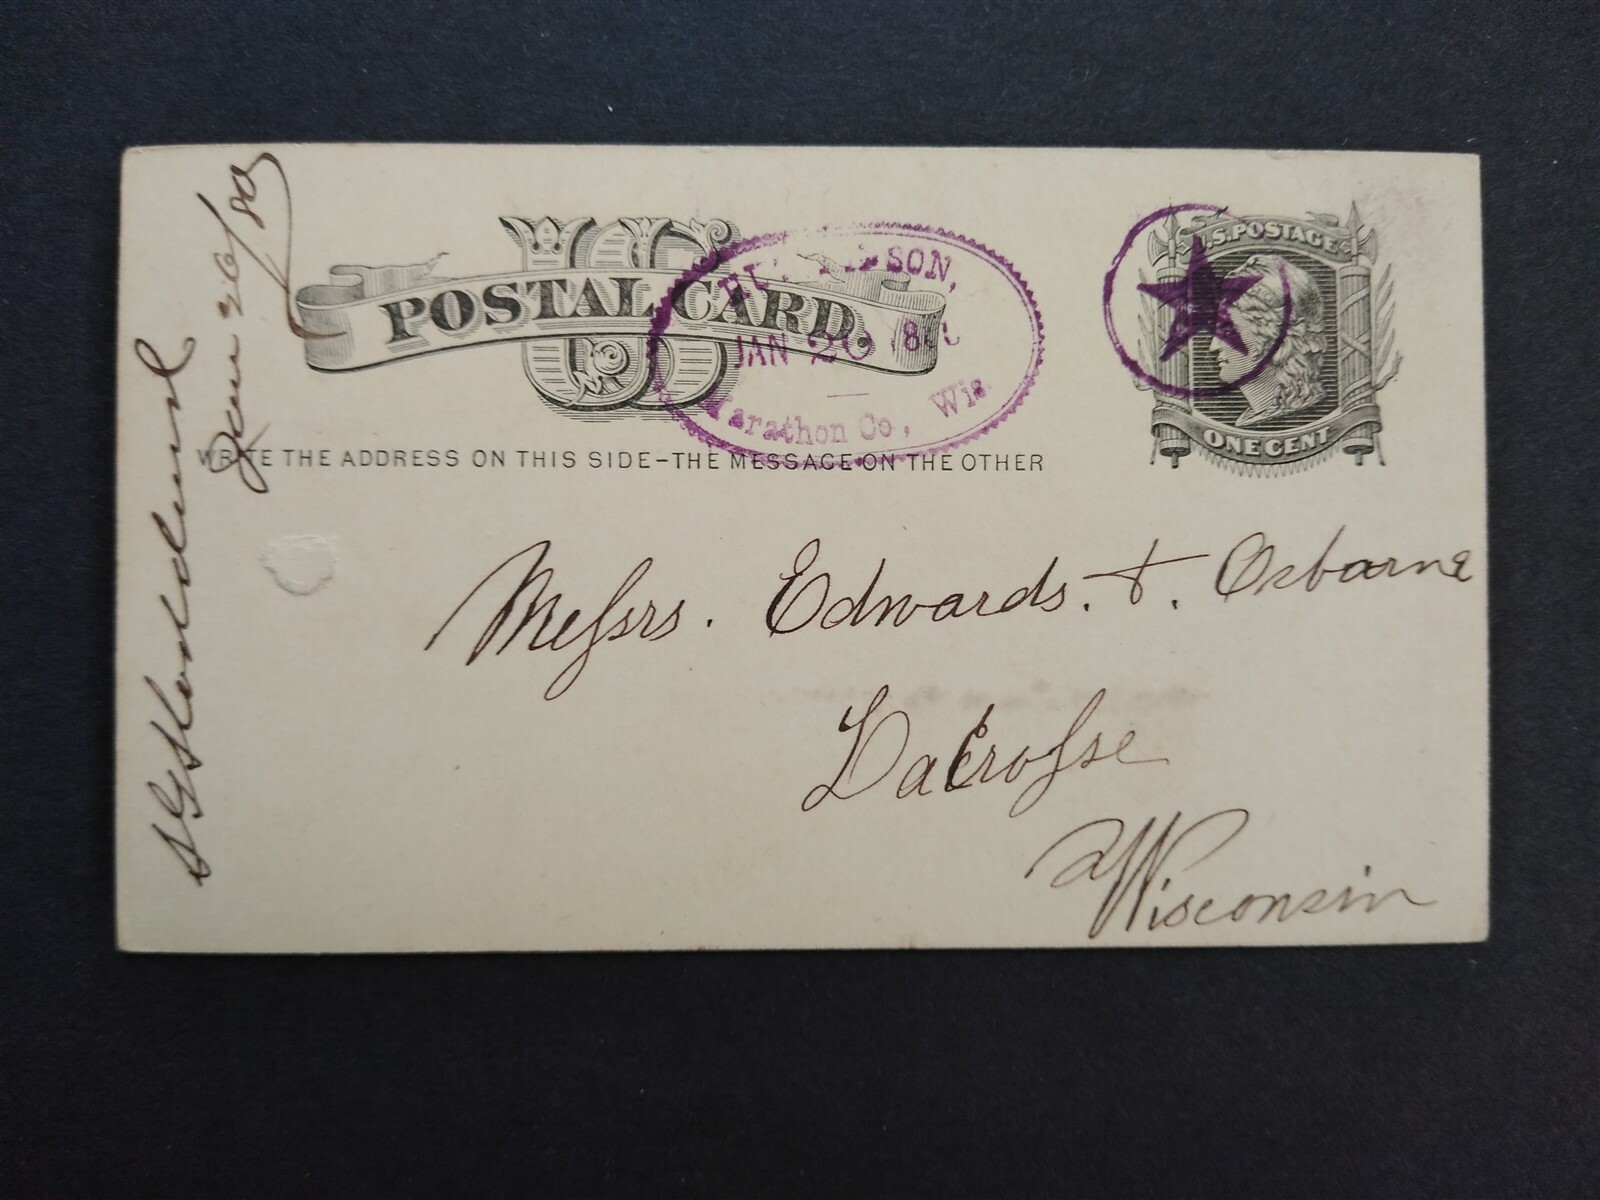 US
POSTAL CARD.
WRITE THE ADDRESS ON THIS SIDE–THE MESSAGE ON THE OTHER
SON,
JAN 20
Marathon Co, Wis.
U.S. POSTAGE
ONE CENT
Messrs. Edwards. &. Osborne
LaCrosse
Wisconsin
Jan 26/80